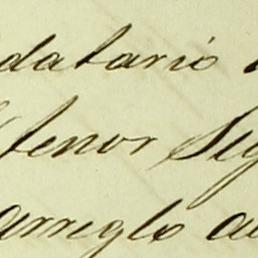 datario
tenor Sig
arreglo a